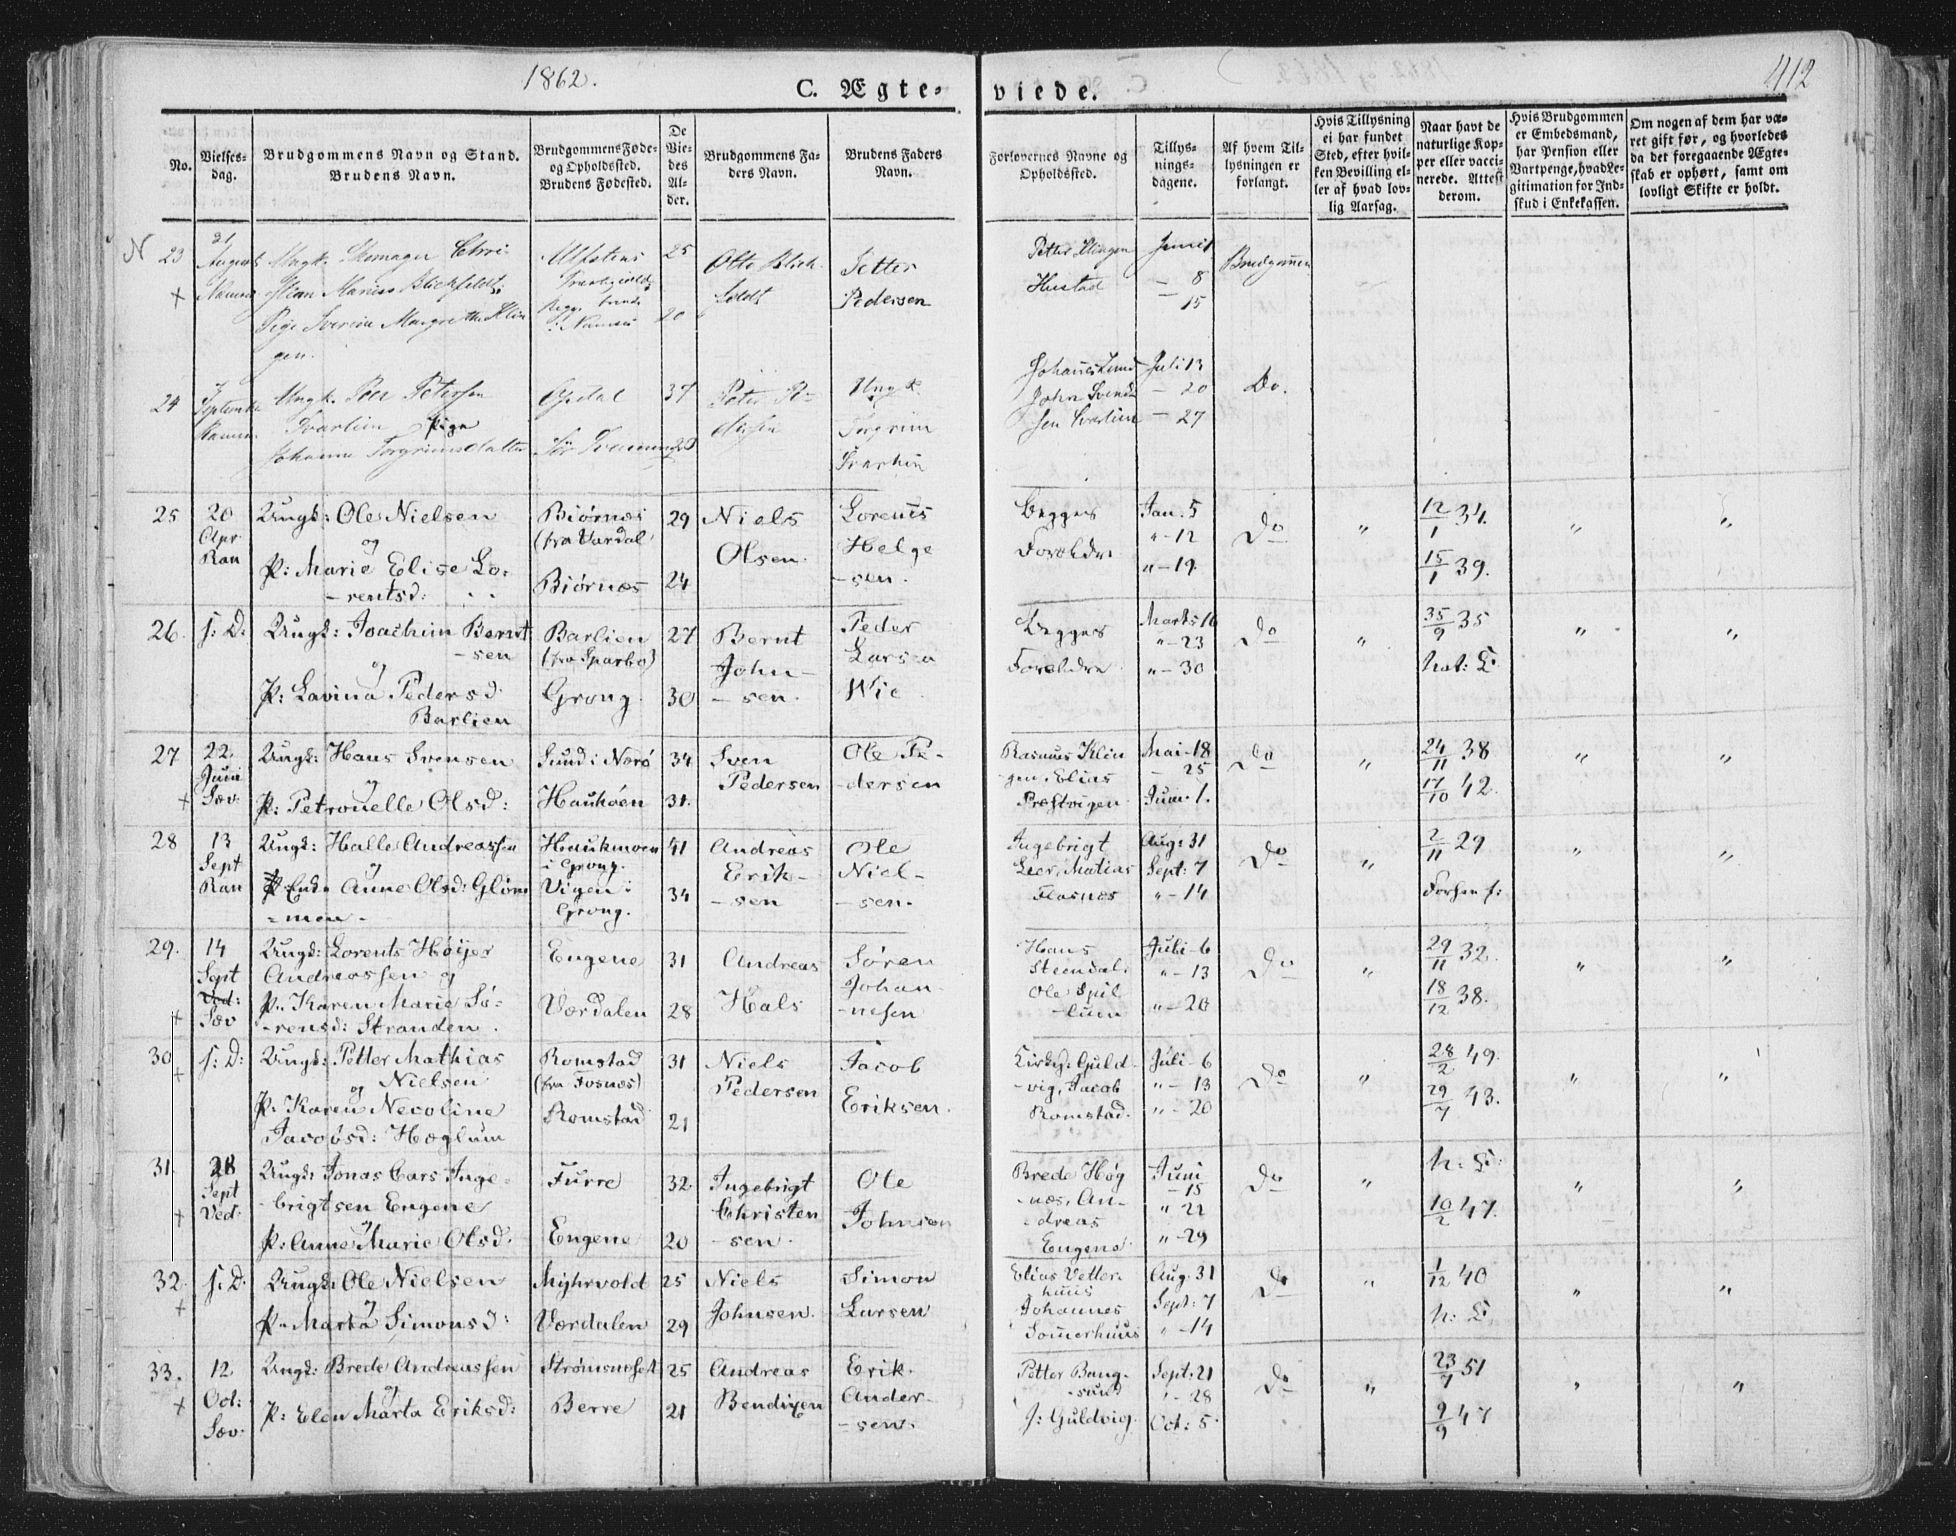 1862.
C. Ægte-
viede.
412
No.
Vielses-
dag.
Brudgommens Navn og Stand.
Brudens Navn.
Brudgommens Føde-
og Opholdssted.
Brudens Fødested.
De
Vie-
des
Al-
der.
Brudgommens Fa-
ders Navn.
Brudens Faders
Navn.
Forlovernes Navne og
Opholdssted.
Tillys-
nings-
dagene.
Af hvem Til-
lysningen er
forlangt.
Hvis Tillysning
ei har fundet
Sted, efter hvil-
ken Bevilling el-
ler af hvad lov-
lig Aarsag.
Naar havt de
naturlige Kop-
per eller vacci-
nerede. Attest
derom.
Hvis Brudgommen
er Embedsmand,
har Pension eller
Vartpenge, hvad Le-
gitimation for Ind-
skud i Enkekassen.
Om nogen af dem har væ-
ret gift før, og hvorledes
da det foregaaende Ægte-
skab er ophørt, samt om
lovligt Skifte er holdt.
N 23
21
August
Ungk. Skomager Chri-
stian Marius Blichfeldt
Pige Iverine Margrethe Klin
gen.
25
20
Otto Blich-
feldt
Petter
Pedersen
Petter Klingen
Hustad
Juni 1
- 8
- 15
Brudgommen
24
September
Ungk. Peer Petersen
Tvarlien Pige
Johanna Torgrimsdatter
Opdal
37
Peter Pe-
dersen
Ungk.
Torgrim
Johannes Lund
John Svend-
sen
Juli 13
- 20
- 27
Do.
25
20
Apr
Ran
Ungk: Ole Nielsen
og
P: Marie Elise Lo-
-rentsd:
Biørnes
(fra Værdal)
Biørnæs
29
24
Niels
Olsen.
Lorents
Helge
-sen.
Begges
Forældre
Jan. 5
" - 12
" - 19.
Do
"
12/1 34.
15/1 39.
"
"
26.
s: D:
Ungk: Joachim Bernt
-sen
og
P: Lavina Pedersd.
Barlien
Barlien
(fra Sparbo)
Grong.
27
30
Bernt
John-
-sen.
Peder
Larsen
Wie
Begges
Forældre
Marts 16
" - 23
" - 30
Do
"
35/9 35
nat: K.
"
"
27
22.
Juni
Sæv.
+
Ungk: Hans Svensen
og
P: Petronelle Olsd:
Sund i Nærø
Hauhøen
34
31.
Sven
Pedersen
Ole Pe-
-dersen
Rasmus Klin
-gen. Elias
Præstvigen.
Mai - 18
- 25
Juni. 1.
Do
"
24/11 38
17/10 42.
"
"
28
13
Sept
Ran
Ungk: Halle Andreassen
og
Enke Anne Olsd: Gløm
-men.
Haukmoen
i Grong.
Vigen i
Grong.
41
34
Andreas
Erik-
-sen
Ole
Niel-
-sen.
Ingebrigt
Leer, Matias
Flasnæs
Aug: 31
Sept: 7
" - 14
Do
"
2/11 29
"
"
29.
14
Sept
Ved:
Sæv
+
Ungk: Lorents Høijer
Andreassen og
P: Karen Marie Sø-
-rensd: Stranden.
Engene
Værdalen
31
28
Andreas
Hals
Søren
Johan-
-nesen
Hans
Steendal.
Ole Spil
-lum
Juli - 6
" - 13
" - 20
Do
"
29/11 32.
18/12 38.
"
"
30
+
s: D:
Ungk: Petter Mathias
Nielsen
og
P: Karen Necoline
Jacobsd: Hæglum
Romstad
(fra Fosnæs)
Romstad
31
21
Niels
Pedersen
Jacob
Eriksen.
Kirkes: Guld-
-vig, Jacob
Romstad.
Juli - 6
" - 13
" - 20
Do
"
28/2 49.
29/7 43.
"
"
31
21
Sept
Ved:
+
Ungk: Jonas Cars Inge-
-brigtsen Engene
og
P: Anne Marie Olsd.
Furre
Engene
32
20
Ingebrigt
Christen
-sen.
Ole
Johnsen
Brede Høg
-næs, An-
-dreas
Engene.
Juni
- 15
" 22
" - 29
Do
"
n: K:
10/2 47.
"
"
32.
+
s: D.
Ungk: Ole Nielsen
og
P. Marta Simonsd:
Mijhrvold
Værdalen
25
29
Niels
Johnsen.
Simon
Larsen
Elias Vetter-
huus
Johannes
Somerhuus
Aug. 31
Sept: 7
" - 14
Do
"
1/12 40
n: K.
"
"
33.
+
12
Oct:
Sæv.
Ungk: Brede Andreassen
og
P: Elen Marta Eriksd:
Strømsneset
Berre
25
21
Andreas
Bendixen
Erik.
Ander-
-sen.
Petter Bang-
-sund
J: Guldvig.
Sept. 21
" - 28
Oct: 5.
Do
"
23/7 51
9/9 47
"
"